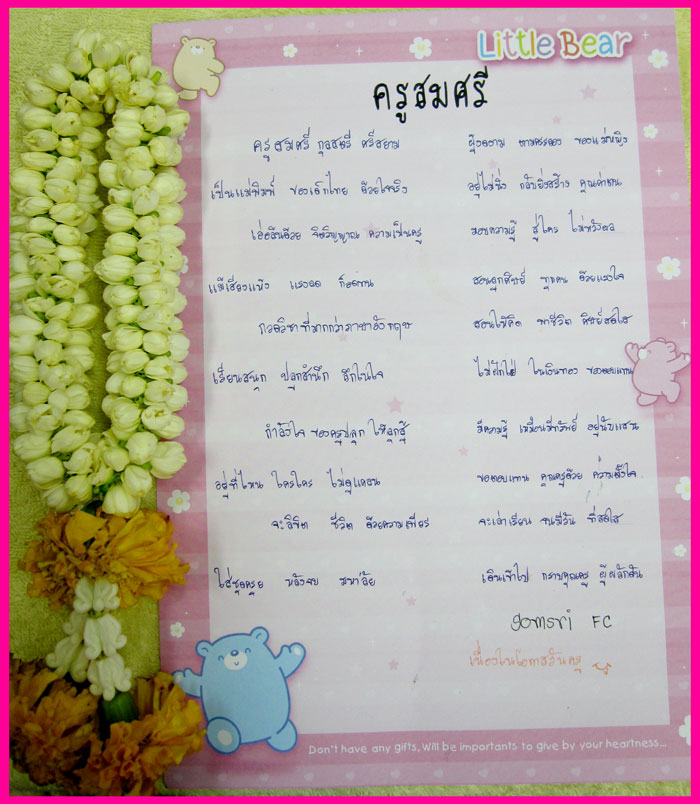 Little Bear
ครูสมศรี
ครูสมศรี กุลสตรี ศรีสยาม ผู้งดงาม ตามครรลอง ของแม่หญิง
เป็นแม่พิมพ์ ของเด็กไทย ด้วยใจจริง อยู่ไม่นิ่ง กลับยิ่งสร้าง คุณค่าตน
เอ่อล้นด้วย จิตวิญญาณ ความเป็นครู มอบความรู้ สู่ใคร ไม่หวังผล
แม้เสียงแห้ง แรงลด ก็อดทน สอนลูกศิษย์ ทุกคน ด้วยแรงใจ
กวดวิชาที่มากกว่าภาษาอังกฤษ สอนให้คิด พาชีวิต ศิษย์สดใส
เรียนสนุก ปลูกสำนึก ลึกในใจ ไม่ฝักใฝ่ ในเงินทอง ของตอบแทน
กำลังใจ ของครูปลุก ให้ลูกสู้ มีความรู้ เหมือนมีทรัพย์ อยู่นับแสน
อยู่ที่ไหน ใครใคร ไม่ดูแคลน ขอตอบแทน คุณครูด้วย ความตั้งใจ
จะลิขิต ชีวิต ด้วยความเพียร จะเล่าเรียน จนมีวัน ที่สดใส
ใส่ชุดครุย หลังจบ มหา'ลัย เดินเข้าไป กราบคุณครู ผู้ผลักดัน
somsri FC
เนื่องในโอกาสวันครู
Don't have any gifts, Will be importants to give by your heartness...